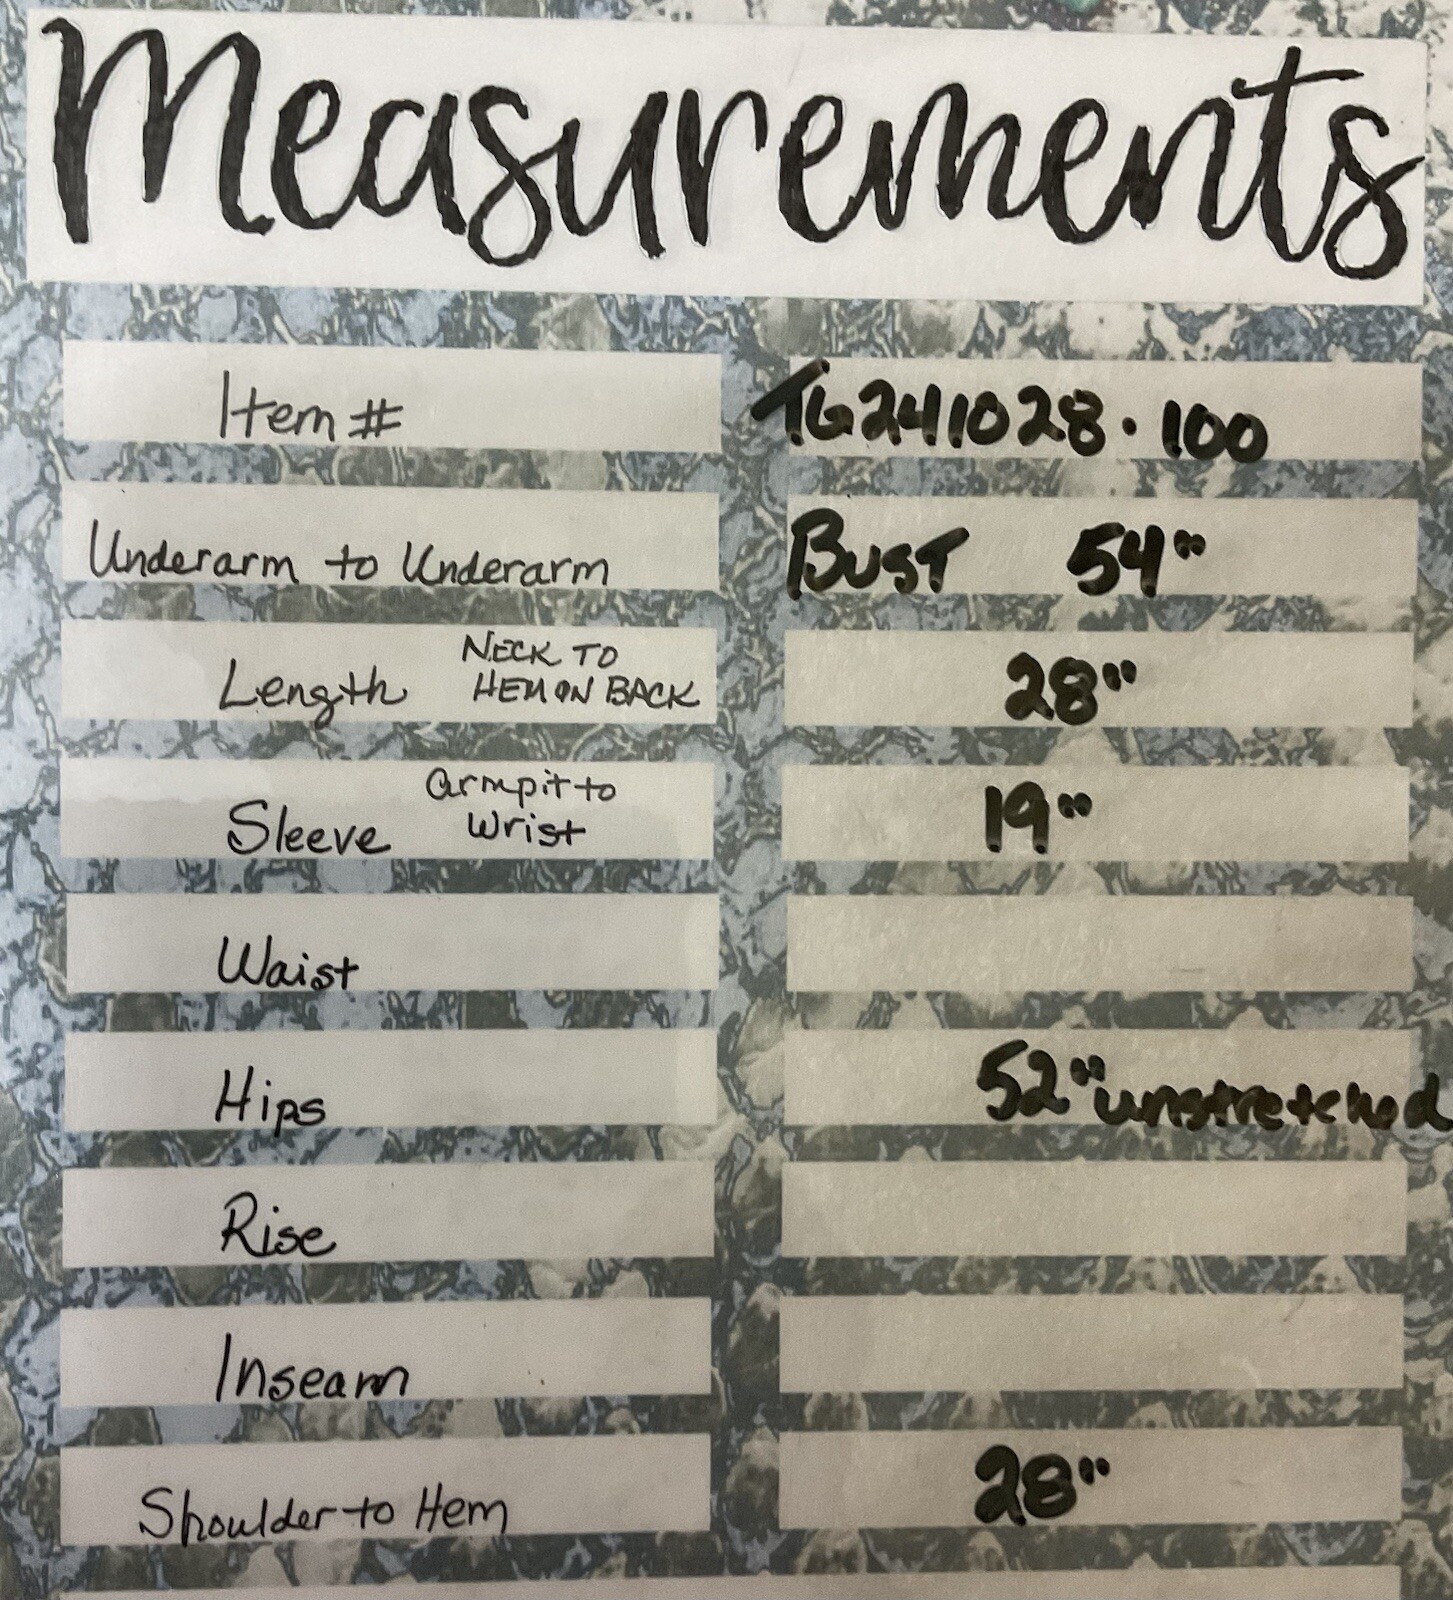 Measurements
Item # TG241028.100
Underarm to Underarm BUST 54"
Length NECK TO HEM ON BACK 28"
Sleeve armpit to Wrist 19"
Waist
Hips 52" unstretched
Rise
Inseam
Shoulder to Hem 28"